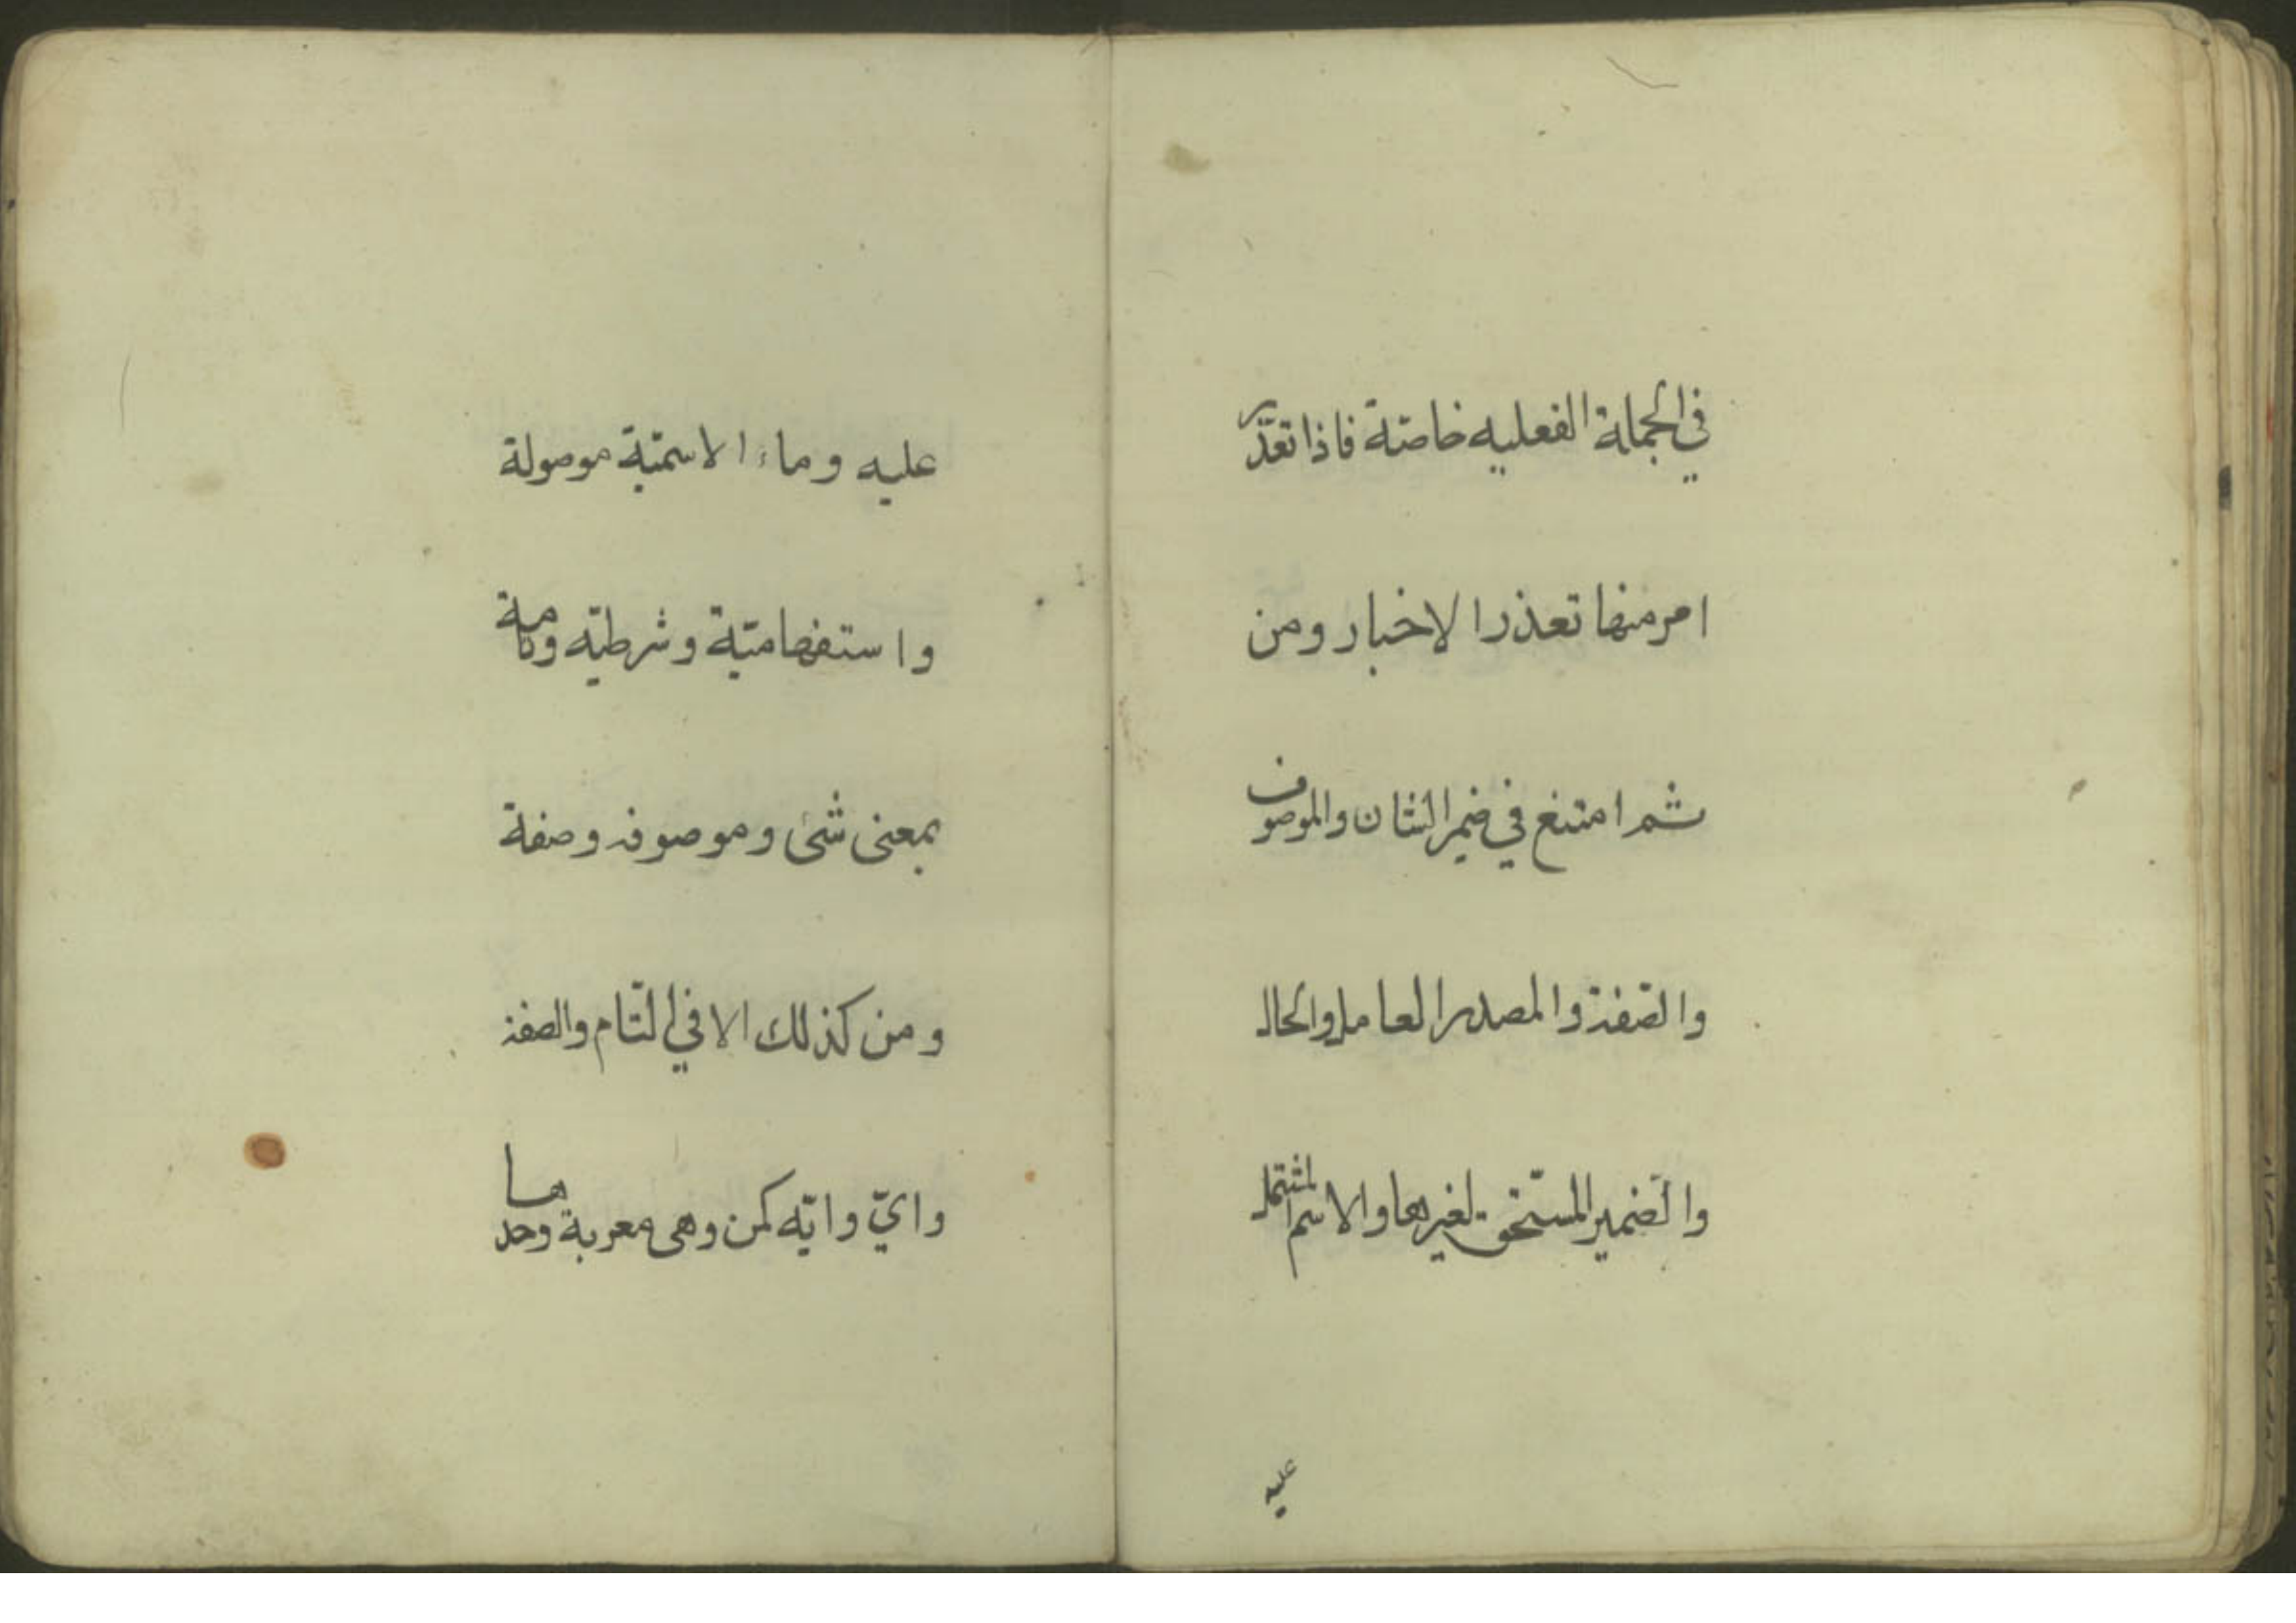 في الجملة الفعليه خاصّة فاذا تعذّر
امر منها تعذر الاخبار ومن
ثم امتنع في ضمير الشان والموصوف
والصّفة والمصدر العامل والحال
والضّمير المستحق لغيرها والاسم المشتمل
عليه
عليه وماء الاسميّة موصولة
واستفهاميّة وشرطيّه وتامة
بمعنى شئ وموصوفه وصفة
ومن كذلك الا في التّام والصفة
وايّ وايّه كمن وهى معربة وحدها